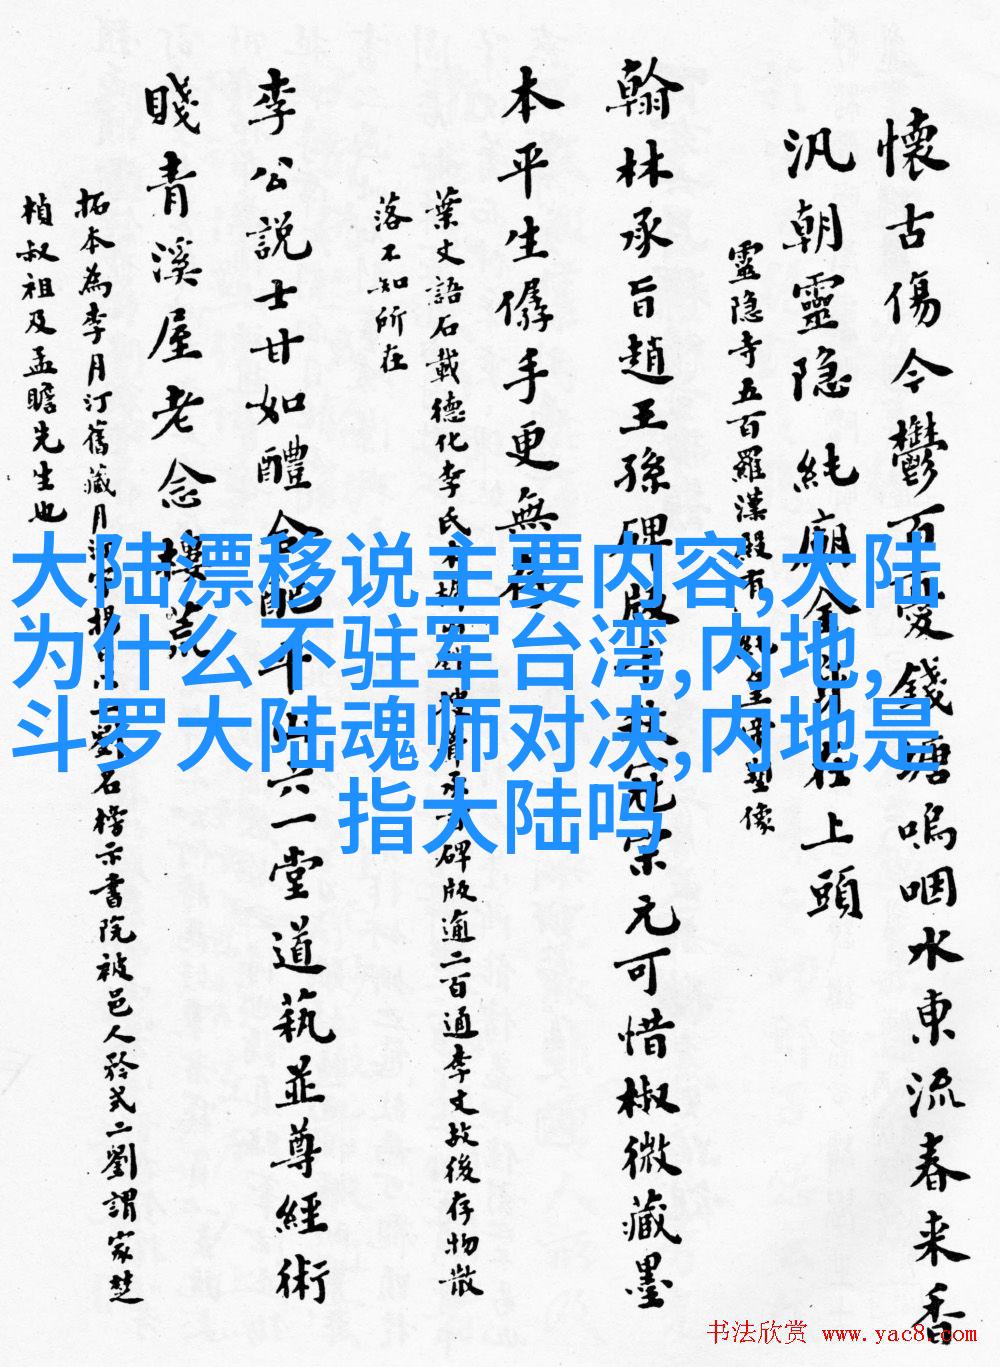 懷古傷今鬱百憂錢塘嗚咽水東流春来香
汎朝靈隐純廟金身在上頭
靈隐寺五百羅漢殿有純皇帝塑像
翰林承旨趙王孫碑版冠宋元可惜椒微藏墨
本平生儔手更無
葉文語石載德化李氏承碑版逾二百通李文故後存物散
落不知所在
李公説士甘如醴六一堂道蓺並尊經術
睃青溪屋老念樓
拓本為李月汀舊藏月劉名榜示書院被邑人矜式二劉謂家楚
楨叔祖及孟瞻先生也
大陆漂移说主要内容,大陆
为什么不驻军台湾,内地,
斗罗大陆魂师对决,内地是
指大陆吗
书法欣赏 www.yac8.com